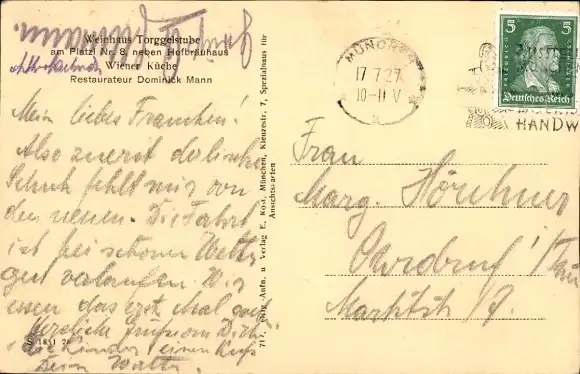 Weinhaus Torggelstube
am Platzl Nr. 8, neben Hofbräuhaus
Wiener Küche
Restaurateur Dominick Mann
Mein liebes Frauchen!
Also zuerst der linke
Schuh fehlt mir von
den neuen. Die Fahrt
ist bei schönem Wetter
gut verlaufen. Wir
essen das erst Mal
herzliche Dich
die Kinder einen Kuß
Dein Walter.
S 1851 7
717, Orig.-Aufn. u Verlag E. Kost, München, Kienzestr. 7, Spezialhaus für
Ansichtskarten
MÜNCHEN
17.7.27.
10-11 V
5 5
Deutsches Reich
HANDW
Frau
Marg. Hörchner
Ohrdruf / Thür
Marktstr.